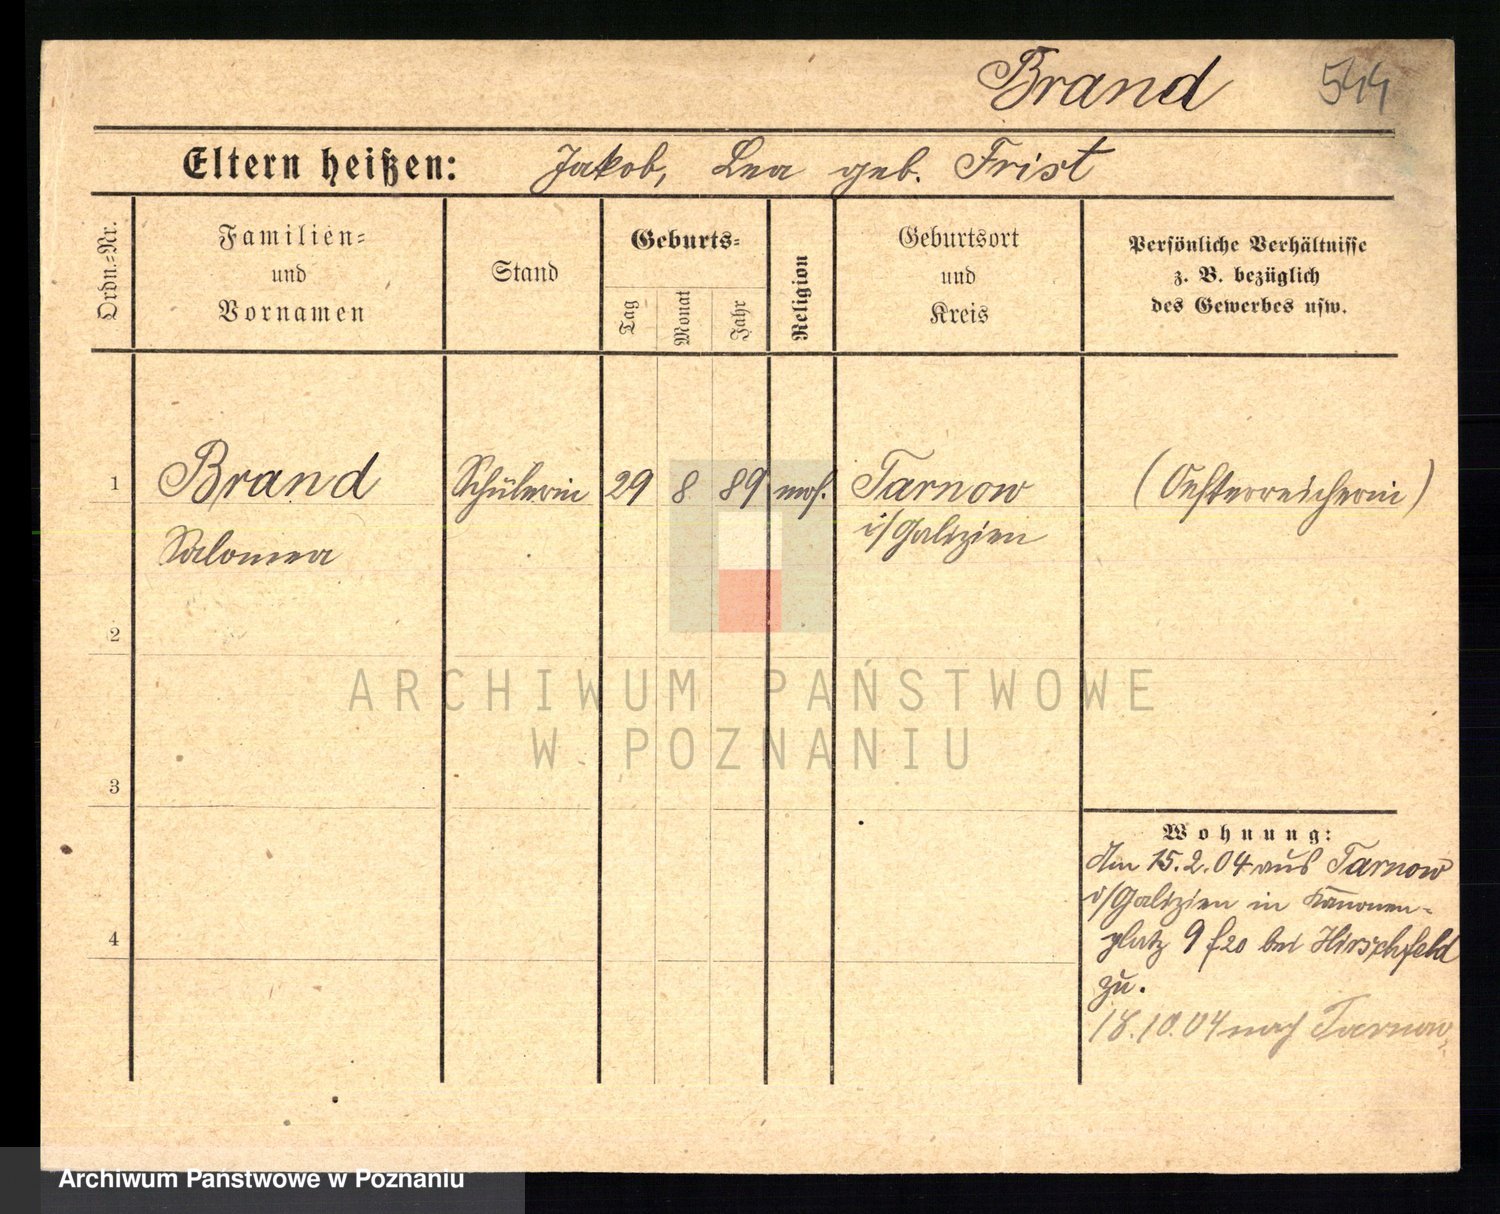 Brand 544
Eltern heißen: Jakob, Lea geb. Frist
Ordn.-Nr.
Familien-
und
Vornamen
Stand
Geburts-
Tag
Monat
Jahr
Religion
Geburtsort
und
Kreis
Persönliche Verhältnisse
z. B. bezüglich
des Gewerbes usw.
1 Brand Schülerin 29 8 89 mos. Tarnow (Oesterreicherin)
Salomea i/Galizien
2
3
4
Wohnung:
Am 15.2.04 aus Tarnow
i/Galizien in Kanonen-
platz 9 bei Hirschfeld
zu.
18.10.04 nach Tarnow
ARCHIWUM PAŃSTWOWE
W POZNANIU
Archiwum Państwowe w Poznaniu